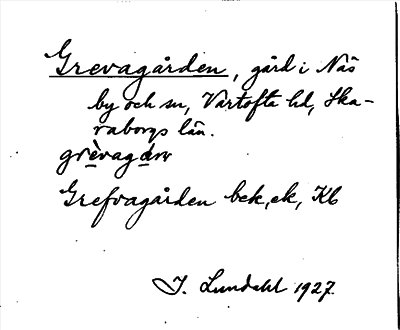 Grevagården, gård i Näs
by och sn, Vartofta hd, Ska-
raborgs län.
grèvagárn
Grefvagården bek, ek, Kb
I. Lundahl 1927.